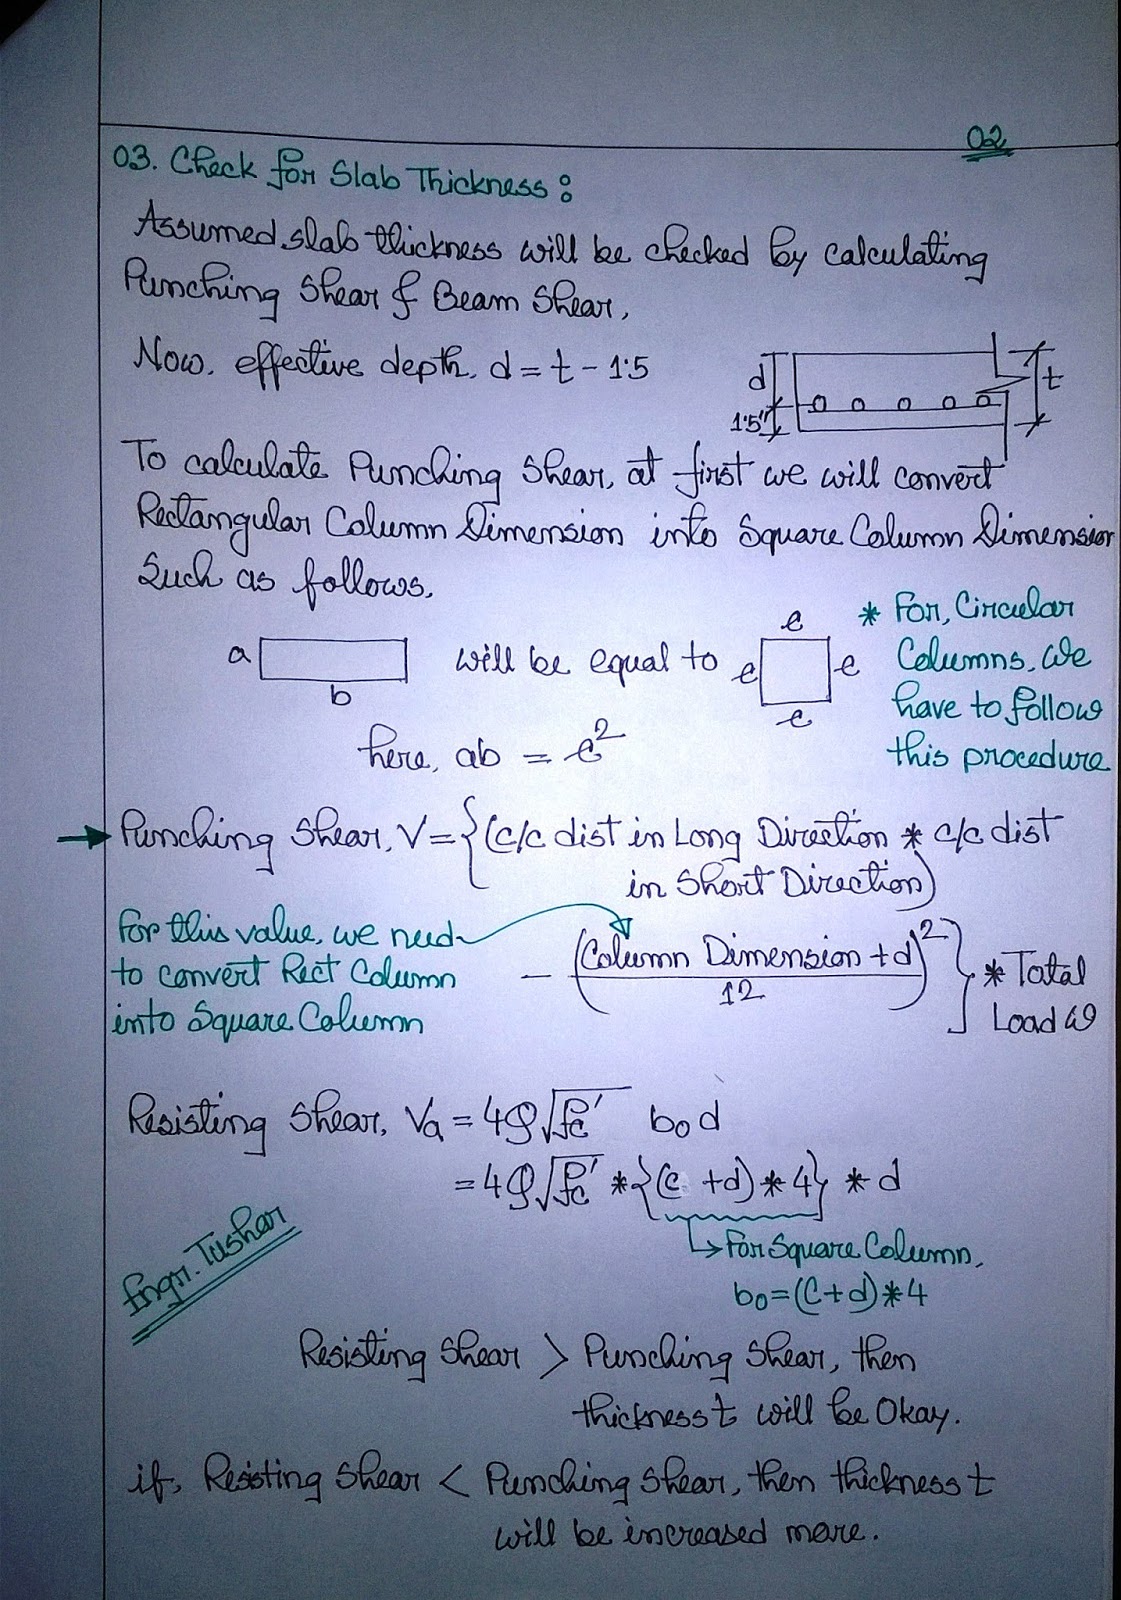 02
03. Check for Slab Thickness :
Assumed slab thickness will be checked by calculating
Punching Shear & Beam Shear,
Now, effective depth, d = t - 1.5
d
1.5"
t
To calculate Punching Shear, at first we will convert
Rectangular Column Dimension into Square Column Dimension
Such as follows,
a
b
will be equal to
c
c
c
c
* For, Circular
Columns, we
have to follow
this procedure
here, ab = c²
→ Punching Shear, V = {(c/c dist in Long Direction * c/c dist
in Short Direction)
For this value, we need
to convert Rect Column
into Square Column
- ((Column Dimension + d)/12)²} * Total
Load W
Resisting Shear, Va = 4φ√fc' b₀d
= 4φ√fc' * {(c + d) * 4} * d
For Square Column,
b₀ = (C + d) * 4
Engr. Tushar
Resisting Shear > Punching Shear, then
thickness t will be Okay.
if, Resisting Shear < Punching Shear, then thickness t
will be increased more.